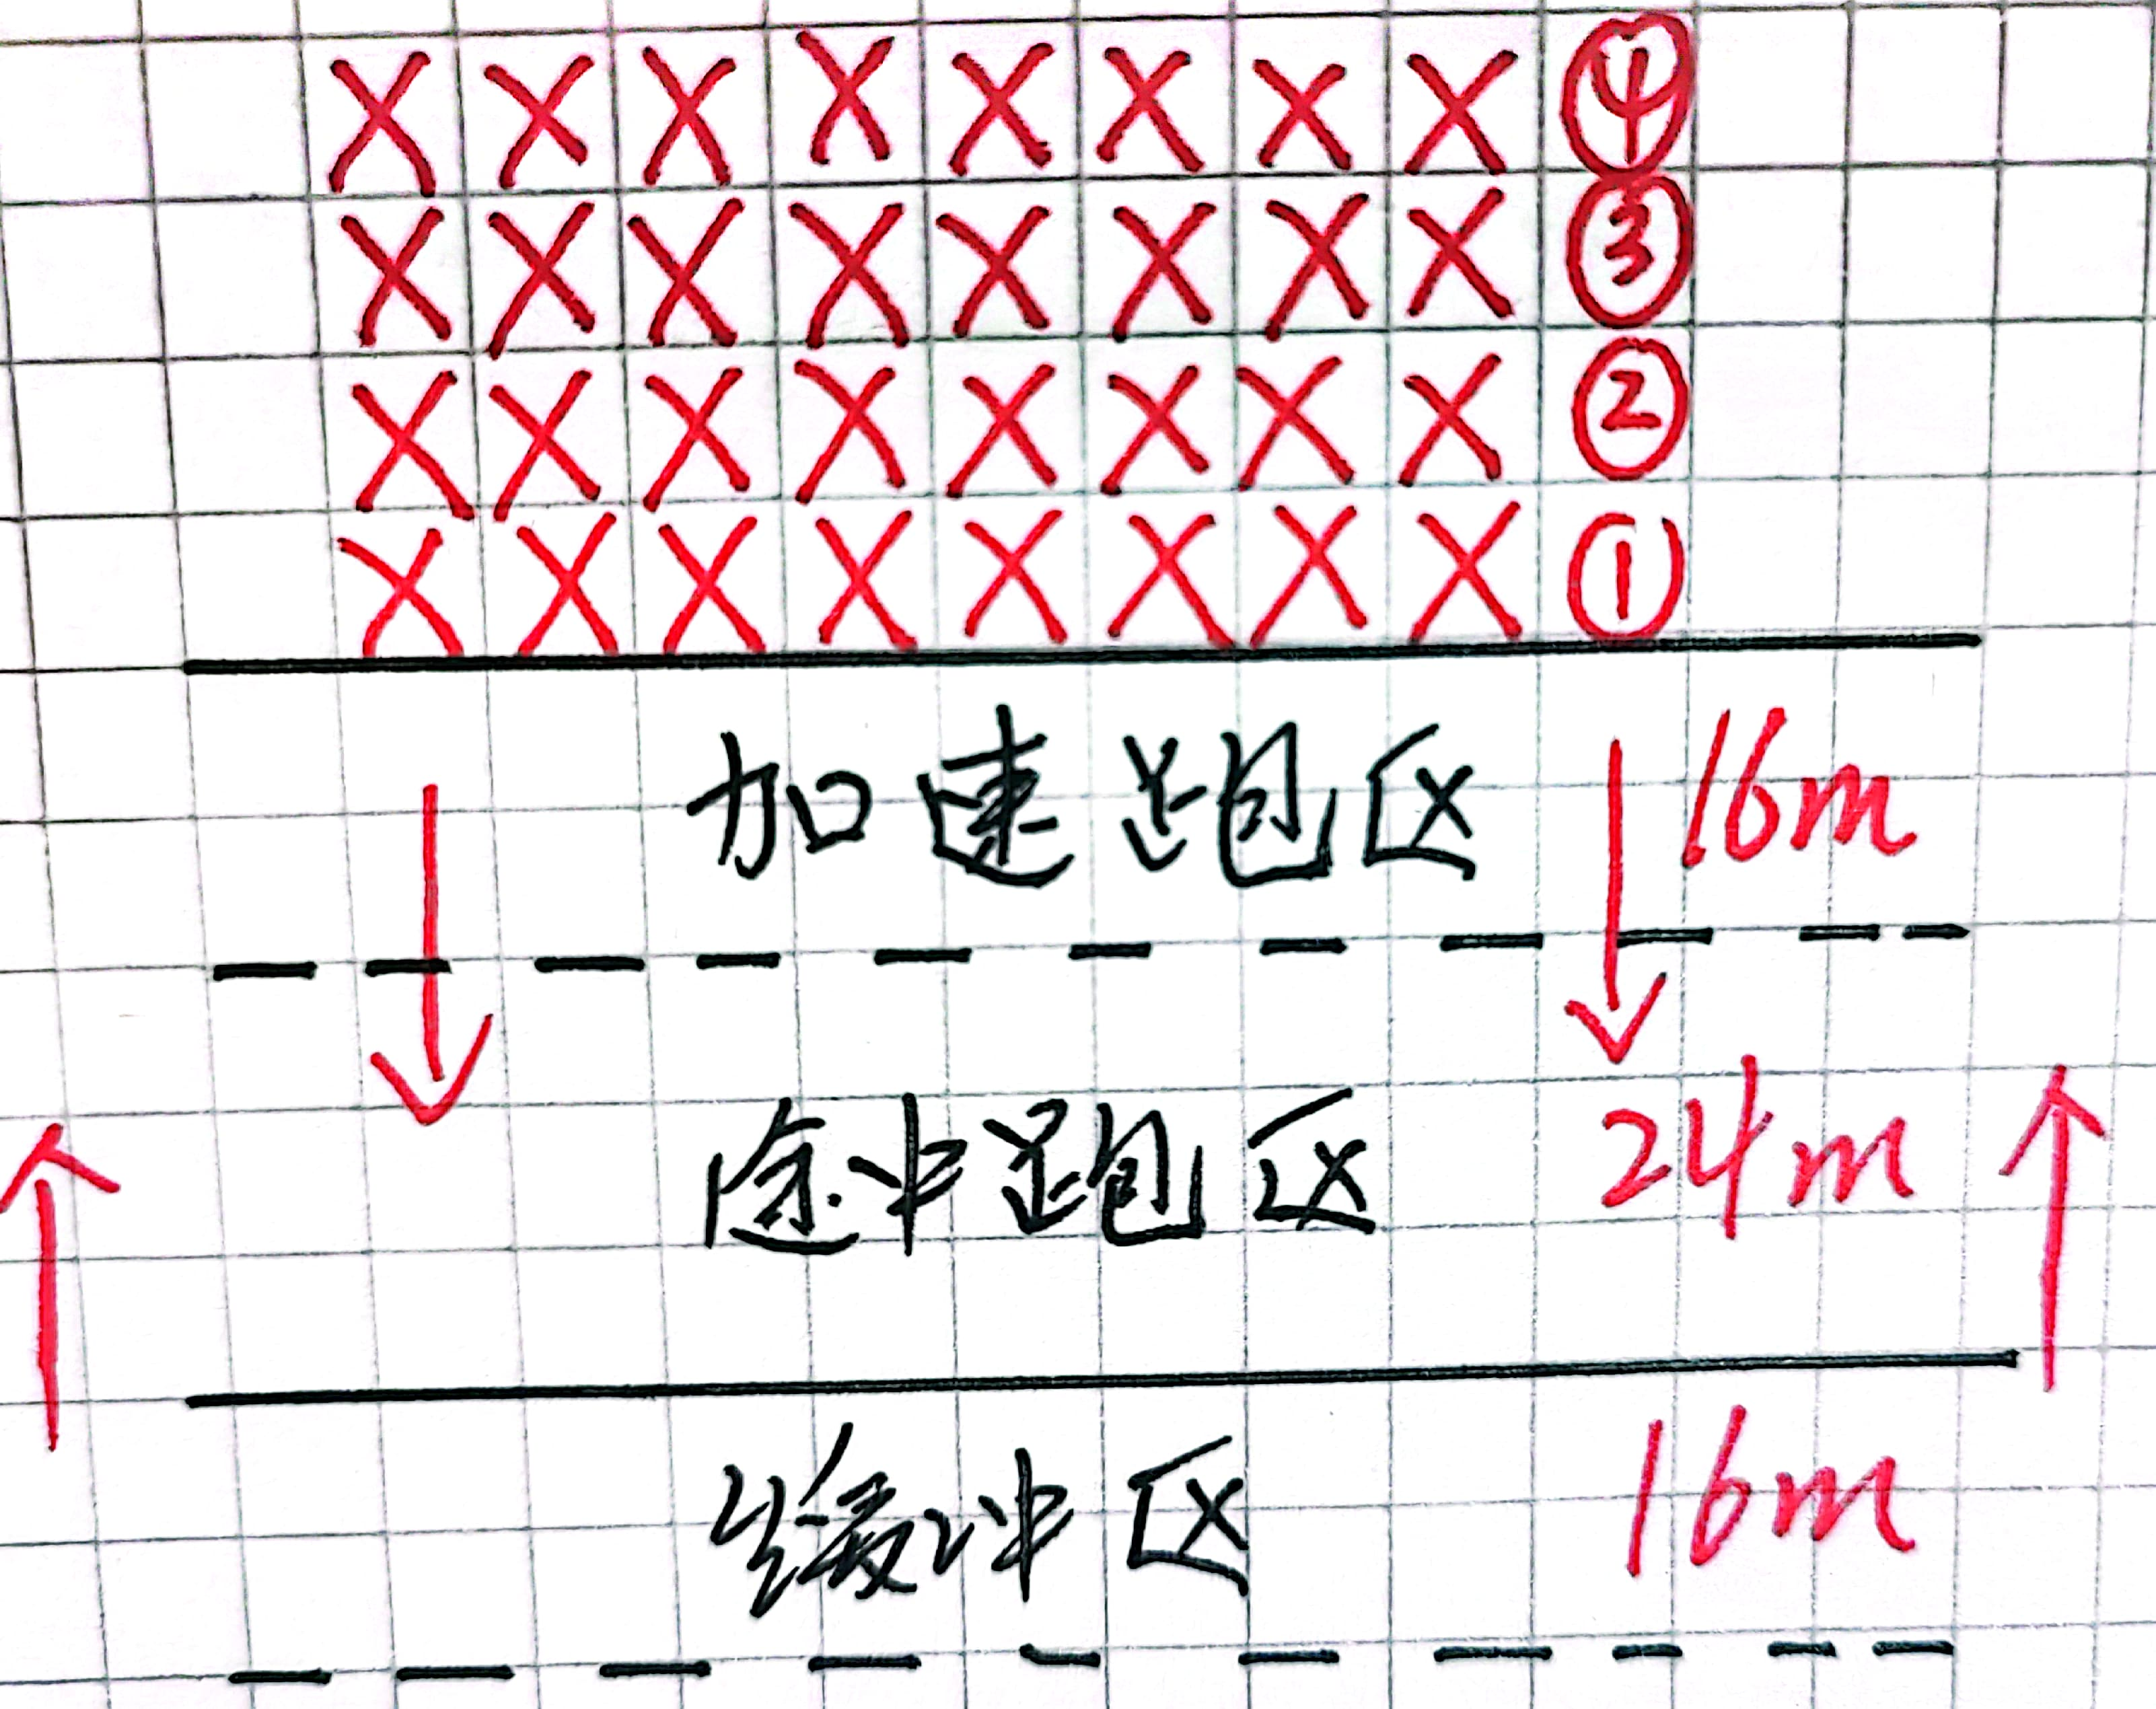 X X X X X X X X ④
X X X X X X X X ③
X X X X X X X X ②
X X X X X X X X ①
加速跑区 16m
途中跑区 24m
缓冲区 16m